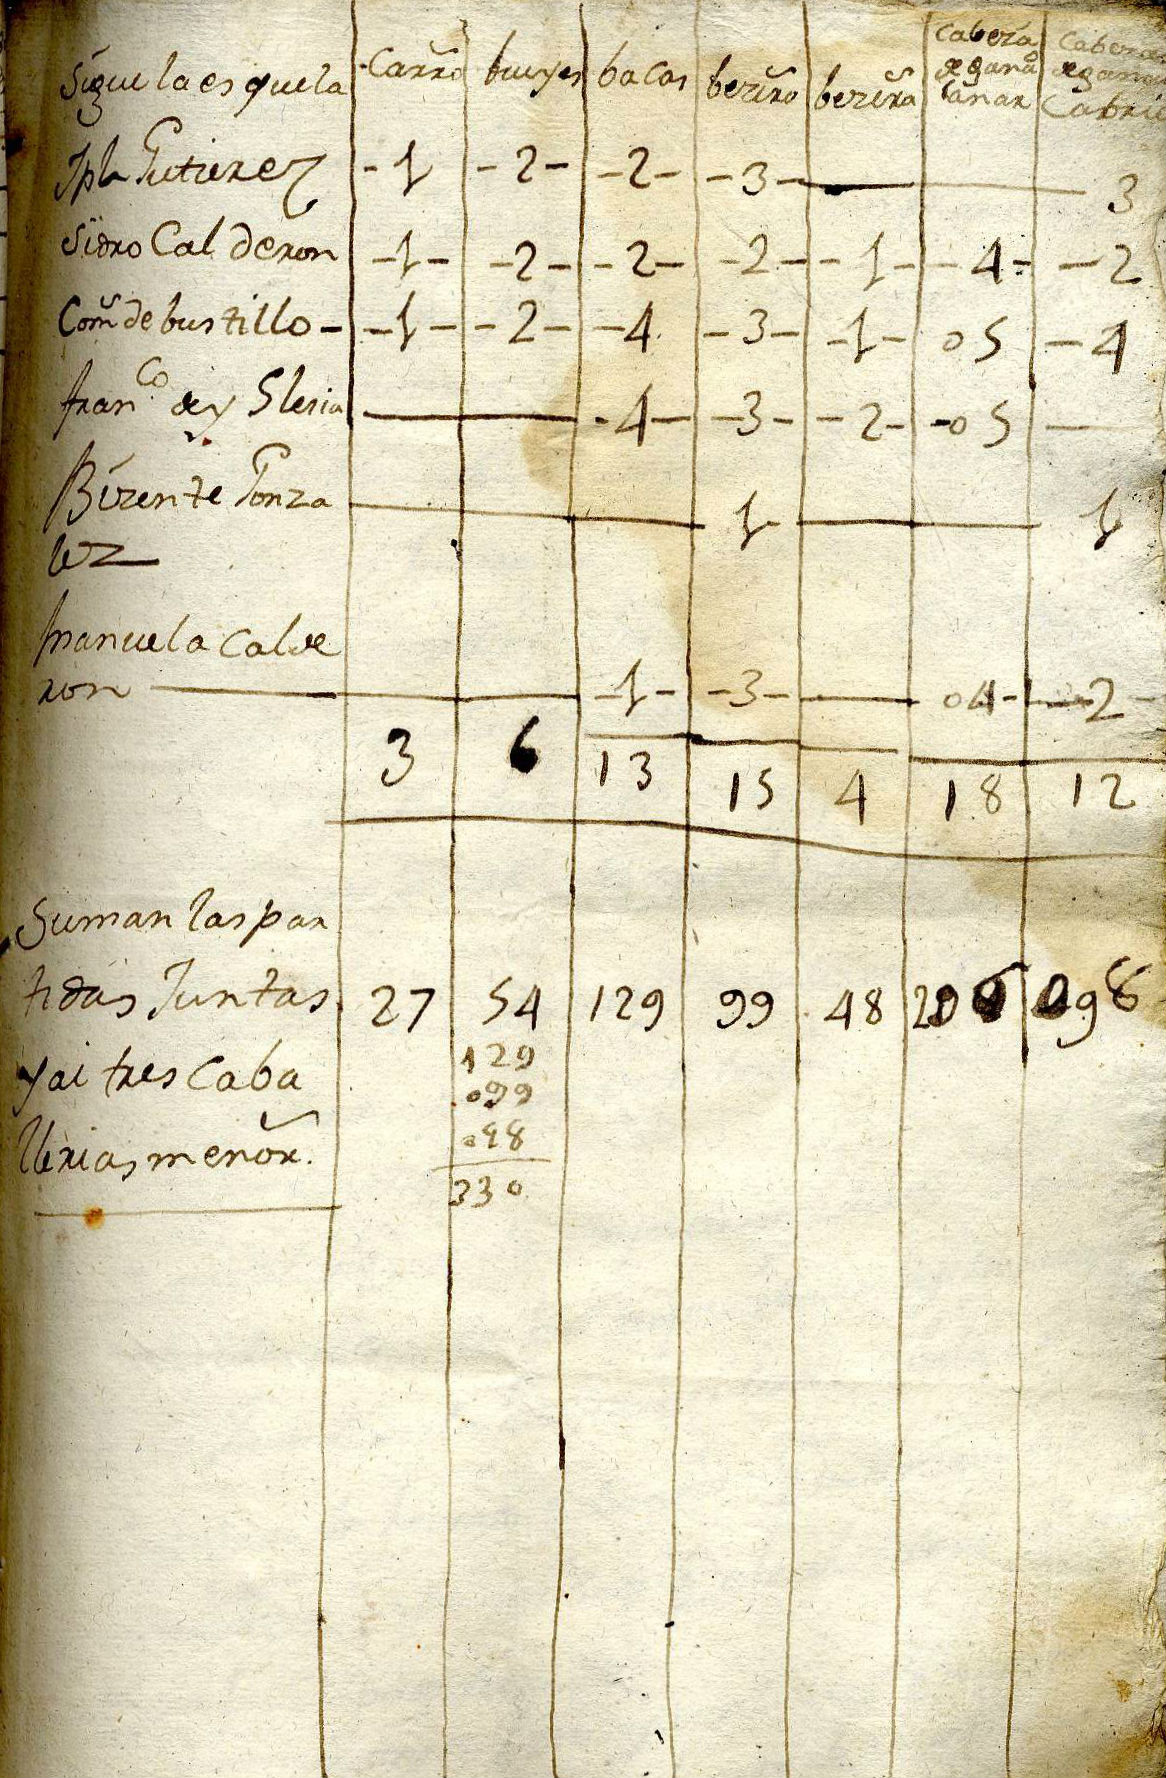 Sigue la esquela Carro bueyes bacas bezero bezera Cabeza de gana lanar Cabeza de gana Cabrio
Jph Gutierrez -1 -2- -2- -3- 3
Sidro Calderon -1- -2- -2- -2- -1- -4- -2
Com de bustillo -1- -2- -4 -3- -1- 05 -4
franco de yglesia -4- -3- -2- -05
Bizente Gonza 1 1
lez
manuela Calde
ron -1- -3- 04- -2-
3 6 13 15 4 18 12
Suman las par
tidas Juntas 27 54 129 99 48 098
y ai tres Caba 129
099
llerias menor. 048
330